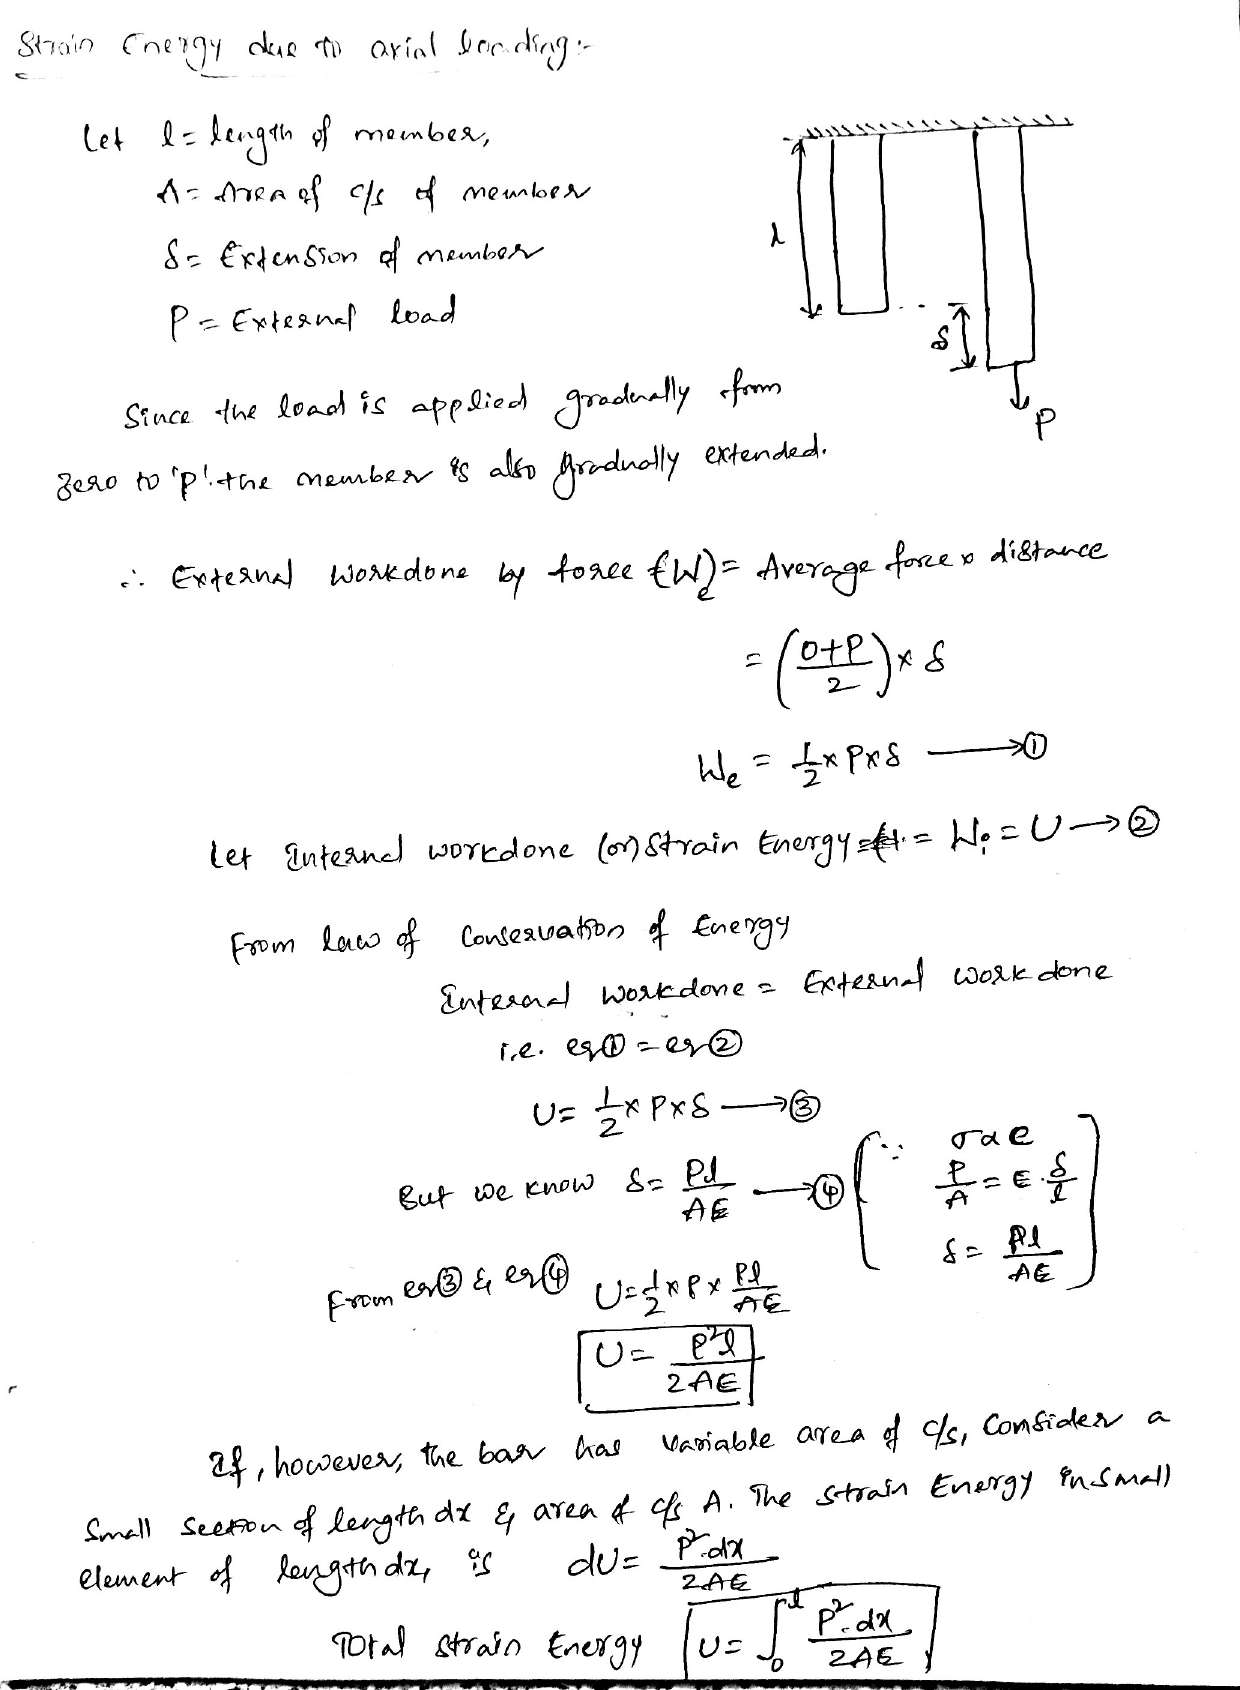 Strain Energy due to axial loading:-
Let l = length of member,
A = Area of c/s of member
δ = Extension of member
P = External load
l
δ
P
Since the load is applied gradually from
zero to 'P'. the member is also gradually extended.
∴ External workdone by force (We) = Average force x distance
= (0+P/2) x δ
We = 1/2 x P x δ ⟶ ①
Let Internal workdone (or) Strain Energy = Wi = U → ②
From law of Conservation of Energy
Internal workdone = External work done
i.e. eq ① = eq ②
U = 1/2 x P x δ ⟶ ③
But we know δ = Pl/AE ⟶ ④
∵ σ α e
P/A = E . δ/l
δ = Pl/AE
From eq ③ & eq ④ U = 1/2 x P x Pl/AE
U = P²l/2AE
If, however, the bar has variable area of c/s, Consider a
Small section of length dx & area of c/s A. The strain Energy in small
element of length dx, is dU = P².dx/2AE
Total strain Energy U = ∫₀ˡ P².dx/2AE